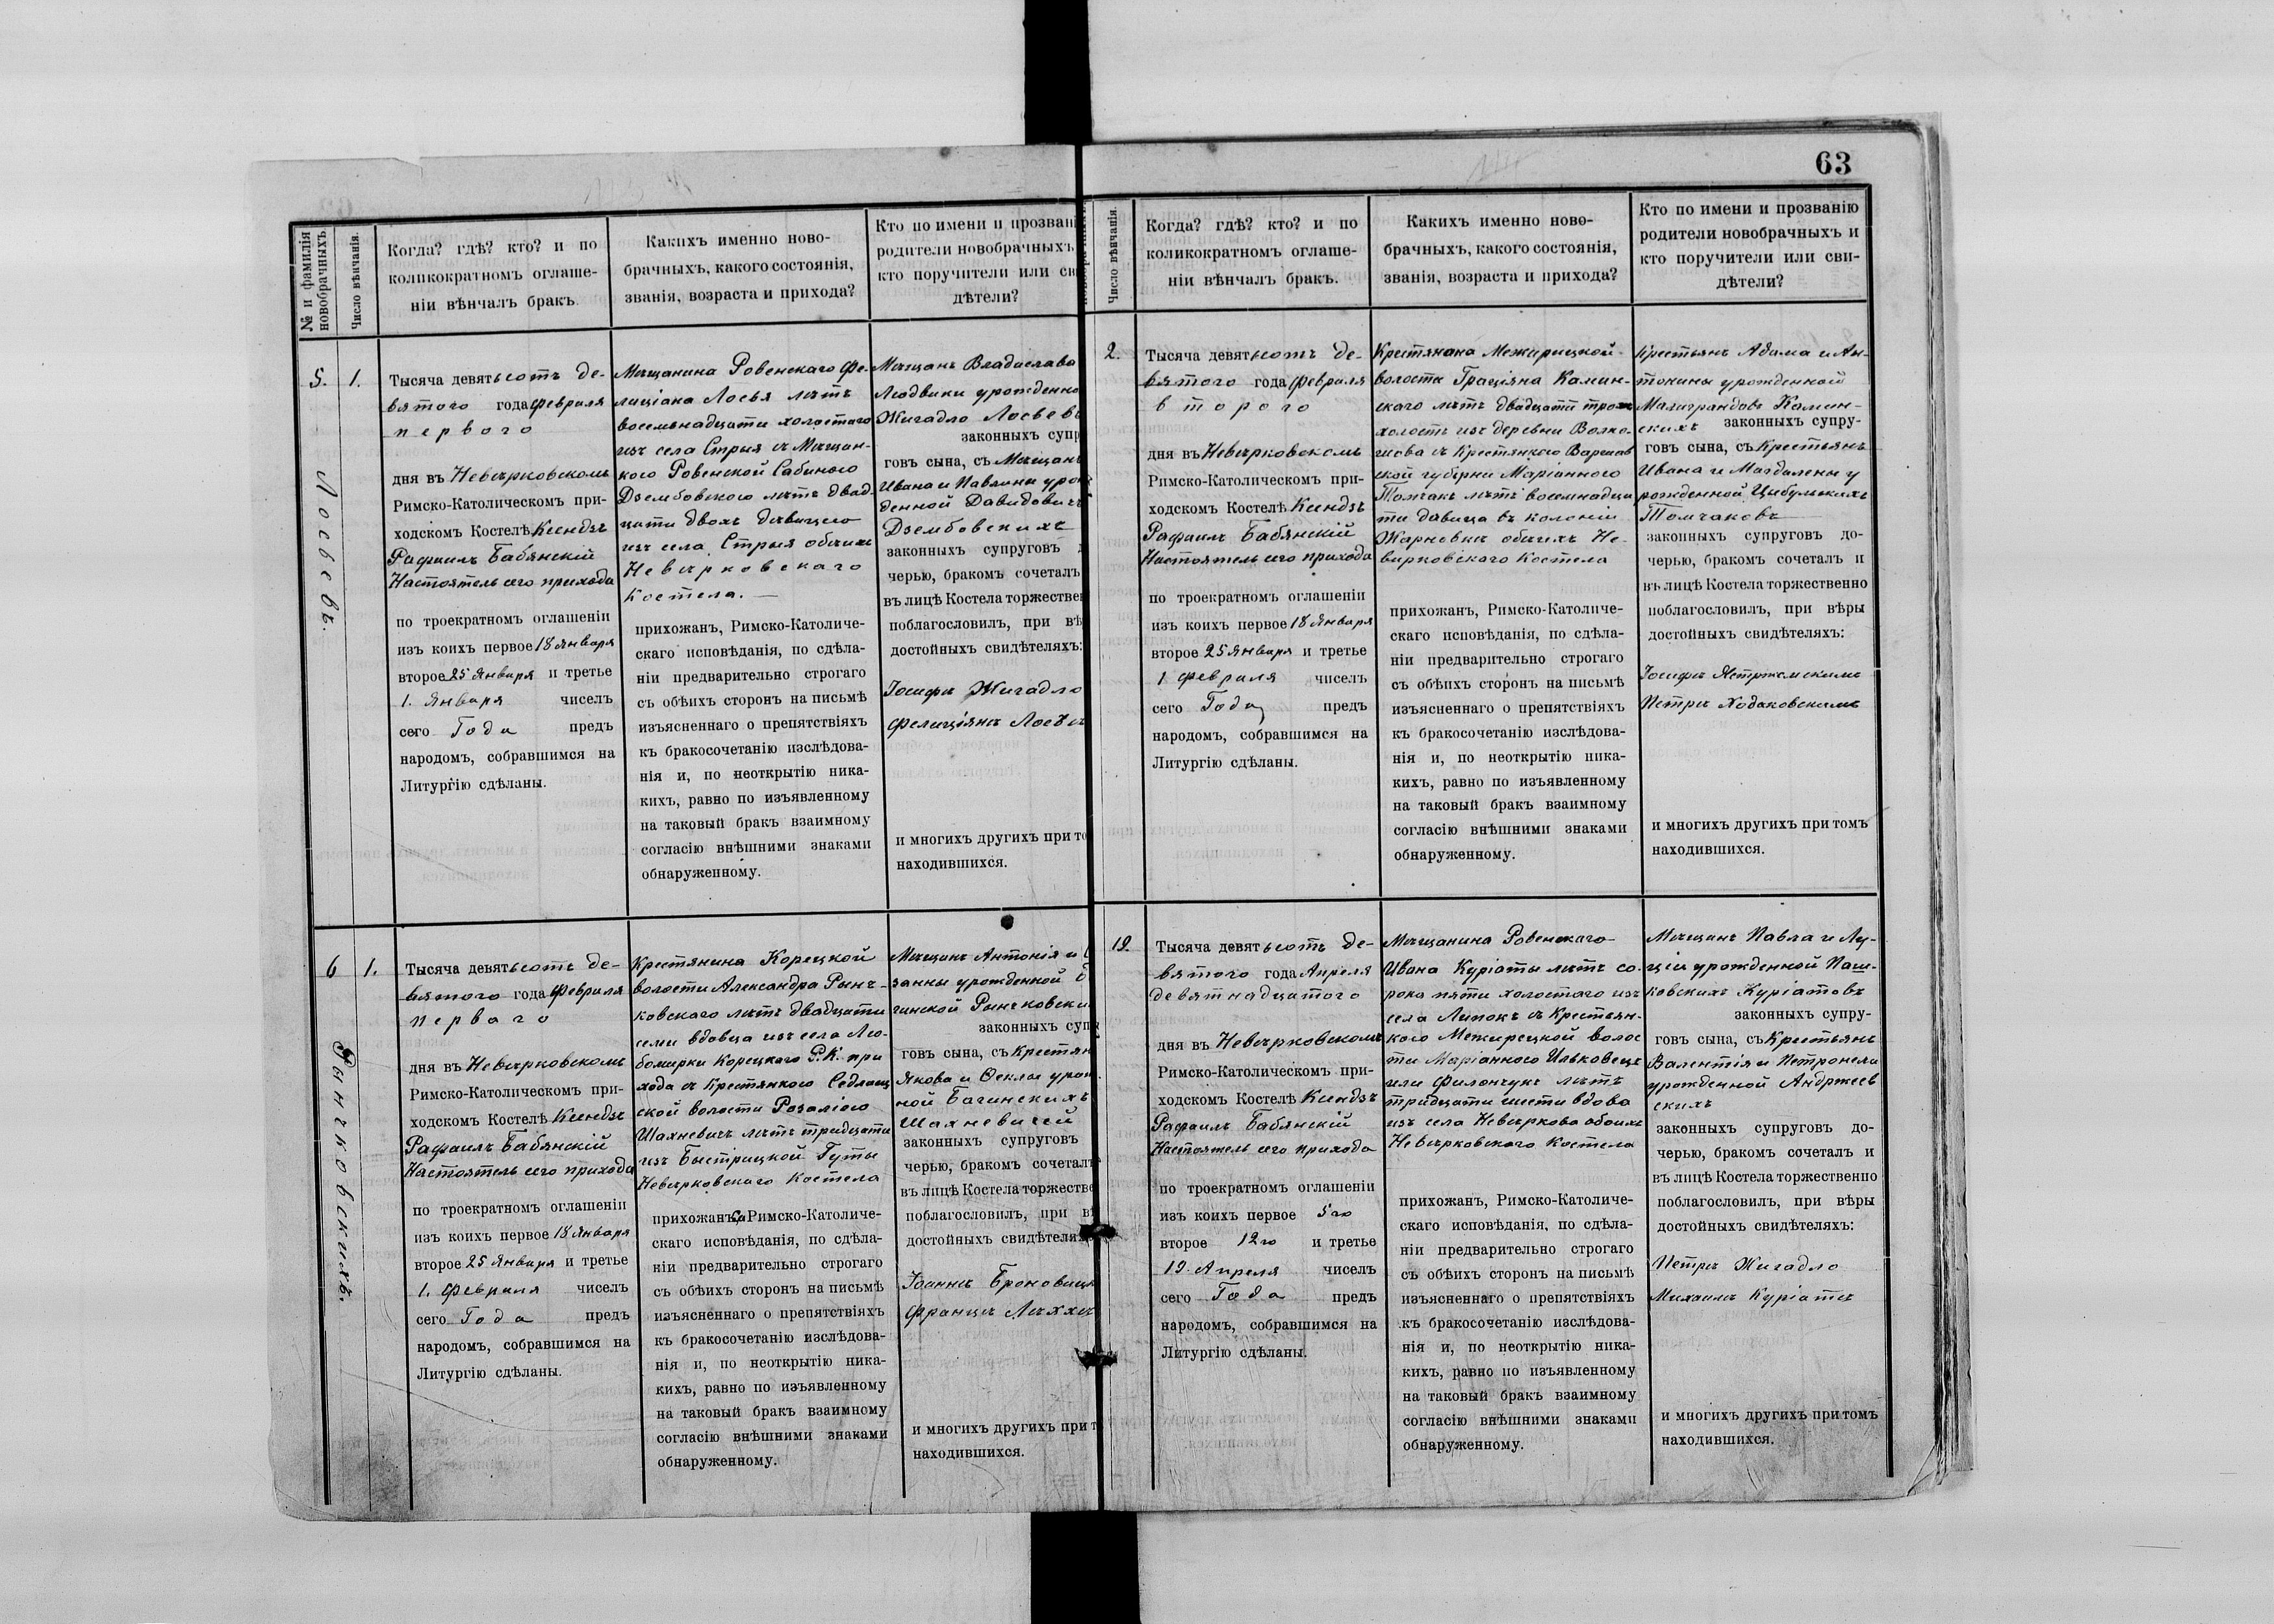 63
№ и фамилія
новобрачныхъ
Число вѣнчанія.
Когда? гдѣ? кто? и по
коликократномъ оглаше-
ніи вѣнчалъ бракъ
Какихъ именно ново-
брачныхъ, какого состоянія,
званія, возраста и прихода?
Кто по имени и прозвані
родители новобрачныхъ
кто поручители или св
дѣтели?
5.
Лосевъ.
1.
Тысяча девятьсотъ де-
вятого года февраля
перваго
дня въ Невѣрковскомъ
Римско-Католическомъ при-
ходскомъ Костелѣ Ксендзъ
Рафаилъ Бабянскій
Настоятель сего прихода
по троекратномъ оглашеніи
изъ коихъ первое 18 Января
второе 25 Января и третье
1. Января чиселъ
сего Года предъ
народомъ, собравшимся на
Литургію сдѣланы.
Мѣщанина Ровенскаго Фе-
лиціана Лосья лѣтъ
восемьнадцати холостаго
изъ села Стрыя съ Мѣщан-
кою Ровенской Сабиною
Дзембовскою лѣтъ двад-
цати двохъ дѣвицею
изъ села Стрыя обоихъ
Невѣрковскаго
Костела.
прихожанъ, Римско-Католиче-
скаго исповѣданія, по сдѣла-
ніи предварительно строгаго
съ обѣихъ сторонъ на письмѣ
изъясненнаго о препятствіяхъ
къ бракосочетанію изслѣдова-
нія и, по неоткрытію ника-
кихъ, равно по изъявленному
на таковый бракъ взаимному
согласію внѣшними знаками
обнаруженному.
Мѣщанъ Владислава
Людвики урожденно
Жигадло Лосьевъ
законныхъ супр
говъ сына, съ Мѣщанъ
Ивана и Павлины уро
денной Давидовичъ
Дзембовскихъ
законныхъ супруговъ
черью, бракомъ сочеталъ
въ лицѣ Костела торжествен
поблагословилъ, при вѣ
достойныхъ свидѣтеляхъ:
Іосифъ Жигадло
Фелиціянъ Лосъ
и многихъ другихъ при то
находившихся.
6
Рынчковскихъ.
1.
Тысяча девятьсотъ де-
вятого года февраля
перваго
дня въ Невѣрковскомъ
Римско-Католическомъ при-
ходскомъ Костелѣ Ксендзъ
Рафаилъ Бабянскій
Настоятель сего прихода
по троекратномъ оглашеніи
изъ коихъ первое 18 Января
второе 25 Января и третье
1. Февраля чиселъ
сего Года предъ
народомъ, собравшимся на
Литургію сдѣланы.
Крестянина Корецкой
волости Александра Рынч-
ковскаго лѣтъ двадцати
семи вдовца изъ села Лю-
бомирки Корецкаго Р.К. при
хода съ Крестянкою Седлищ
ской волости Розаліею
Шахневичъ лѣтъ тридцати
изъ Быстрицкой Гуты
Невѣрковскаго Костела
прихожанъ, Римско-Католиче-
скаго исповѣданія, по сдѣла-
ніи предварительно строгаго
съ обѣихъ сторонъ на письмѣ
изъясненнаго о препятствіяхъ
къ бракосочетанію изслѣдова-
нія и, по неоткрытію ника-
кихъ, равно по изъявленному
на таковый бракъ взаимному
согласію внѣшними знаками
обнаруженному.
Мѣщанъ Антонія и
занны урожденной
гинской Рынчковски
законныхъ суп
говъ сына, съ Крестян
Якова и Феклы урож
ной Багинскихъ
Шахневичей
законныхъ супруговъ
черью, бракомъ сочеталъ
въ лицѣ Костела торжестве
поблагословилъ, при в
достойныхъ свидѣтеля
Іоаннъ Броновицк
Францъ
и многихъ другихъ при т
находившихся.
Число вѣнчанія.
Когда? гдѣ? кто? и по
коликократномъ оглаше-
ніи вѣнчалъ бракъ.
Какихъ именно ново-
брачныхъ, какого состоянія,
званія, возраста и прихода?
Кто по имени и прозванію
родители новобрачныхъ и
кто поручители или сви-
дѣтели?
2.
Тысяча девятьсотъ де-
вятого года февраля
второго
дня въ Невѣрковскомъ
Римско-Католическомъ при-
ходскомъ Костелѣ Ксендзъ
Рафаилъ Бабянскій
Настоятель сего прихода
по троекратномъ оглашеніи
изъ коихъ первое 18 Января
второе 25 Января и третье
1 февраля чиселъ
сего Года предъ
народомъ, собравшимся на
Литургію сдѣланы.
Крестянина Межирицкой
волости Граціяна Камин-
скаго лѣтъ двадцати трохъ
холостъ изъ деревни Волко-
шова съ Крестянкою Варшав
ской губерни Маріанною
Томчакъ лѣтъ восемнадца
ти дѣвица въ колоніи
Жарновки обоихъ Не-
вирковскаго Костела
прихожанъ, Римско-Католиче-
скаго исповѣданія, по сдѣла-
ніи предварительно строгаго
съ обѣихъ сторонъ на письмѣ
изъясненнаго о препятствіяхъ
къ бракосочетанію изслѣдова-
нія и, по неоткрытію ника-
кихъ, равно по изъявленному
на таковый бракъ взаимному
согласію внѣшними знаками
обнаруженному.
Крестьянъ Адама и Ан-
тонины урожденной
Камин-
скихъ законныхъ супру-
говъ сына, съ Крестьянъ
Ивана и Магдалены у
рожденной Цибульскихъ
Томчаковъ
законныхъ супруговъ до-
черью, бракомъ сочеталъ и
въ лицѣ Костела торжественно
поблагословилъ, при вѣры
достойныхъ свидѣтеляхъ:
Іосифъ Ястржемскимъ
Петръ Ходаковскимъ
и многихъ другихъ при томъ
находившихся.
19.
Тысяча девятьсотъ де-
вятого года Апреля
девятнадцатого
дня въ Невѣрковскомъ
Римско-Католическомъ при-
ходскомъ Костелѣ Ксендзъ
Рафаилъ Бабянскій
Настоятель сего прихода
по троекратномъ оглашеніи
изъ коихъ первое 5го
второе 12го и третье
19. Апреля чиселъ
сего Года предъ
народомъ, собравшимся на
Литургію сдѣланы.
Мѣщанина Ровенскаго
Ивана Куріаты лѣтъ со-
рока пяти холостаго изъ
села Липокъ съ Крестьян-
кою Межирецкой волос
ти Маріанною Ильковецъ
или Филончукъ лѣтъ
тридцати шести вдова
изъ села Невѣркова обоихъ
Невѣрковскаго Костела
прихожанъ, Римско-Католиче-
скаго исповѣданія, по сдѣла-
ніи предварительно строгаго
съ обѣихъ сторонъ на письмѣ
изъясненнаго о препятствіяхъ
къ бракосочетанію изслѣдова-
нія и, по неоткрытію ника-
кихъ, равно по изъявленному
на таковый бракъ взаимному
согласію внѣшними знаками
обнаруженному.
Мѣщанъ Павла и Лу-
ціи урожденной Паш-
ковскихъ Куріатовъ
законныхъ супру-
говъ сына, съ Крестьянъ
Валентія и Петронели
урожденной Андржеев
скихъ
законныхъ супруговъ до-
черью, бракомъ сочеталъ и
въ лицѣ Костела торжественно
поблагословилъ, при вѣры
достойныхъ свидѣтеляхъ:
Петръ Жигадло
Михаилъ Куріата
и многихъ другихъ при томъ
находившихся.